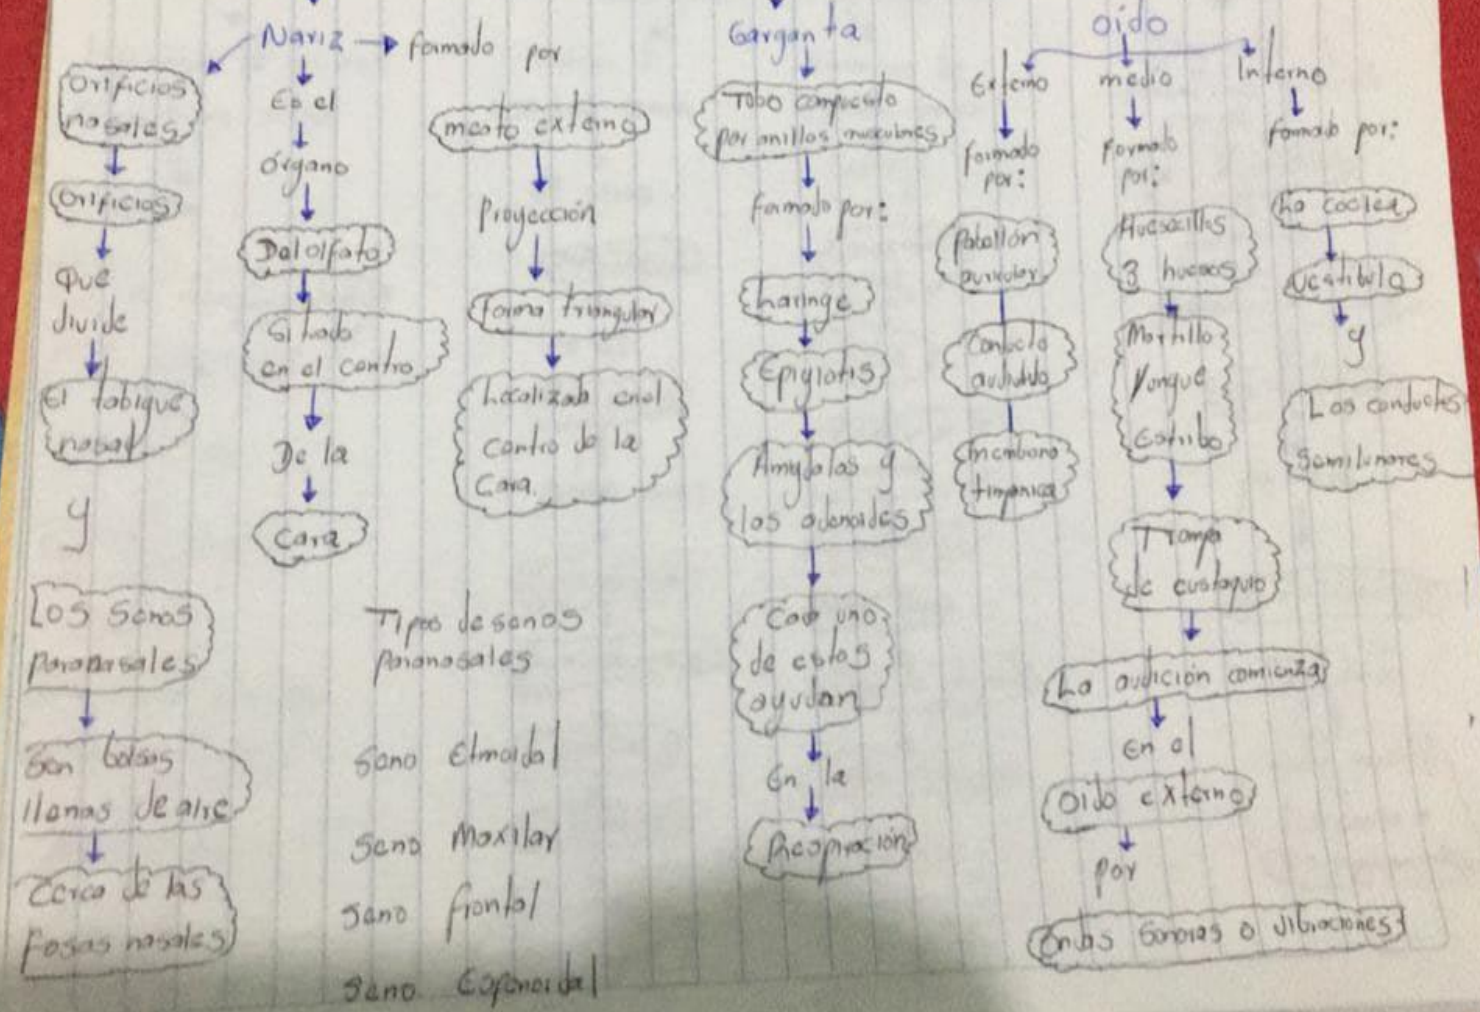 Nariz
formado por
Orificios
nasales
Orificios
Que
divide
El tabique
nasal
y
Los Senos
Paranasales
Son bolsas
llenas de aire
Cerca de las
Fosas nasales
Es el
Órgano
Del olfato
Situado
en el centro
De la
Cara
meato externo
Proyección
forma triangular
Localizab enel
centro de la
Cara
Tipos de senos
paranasales
Seno Etmoidal
Seno Maxilar
Seno frontal
Seno Esfenoidal
Garganta
Tobo compuesto
por anillos musculares
formado por:
Laringe
Epiglotis
Amígdalas y
los adenoides
Cada uno
de estos
ayudan
En la
Respiración
oído
Externo
formado
por:
Pabellón
auricular
Conducto
auditivo
membrana
timpanica
medio
Formado
por:
Huesecillos
3 huesos
Martillo
Yunque
Estribo
Trompa
de eustaquio
La audición comienza
En el
Oido externo
por
Ondas Sonoras o vibraciones
Interno
formado por:
La coclea
Vestibulo
y
Los conductos
Semilunares